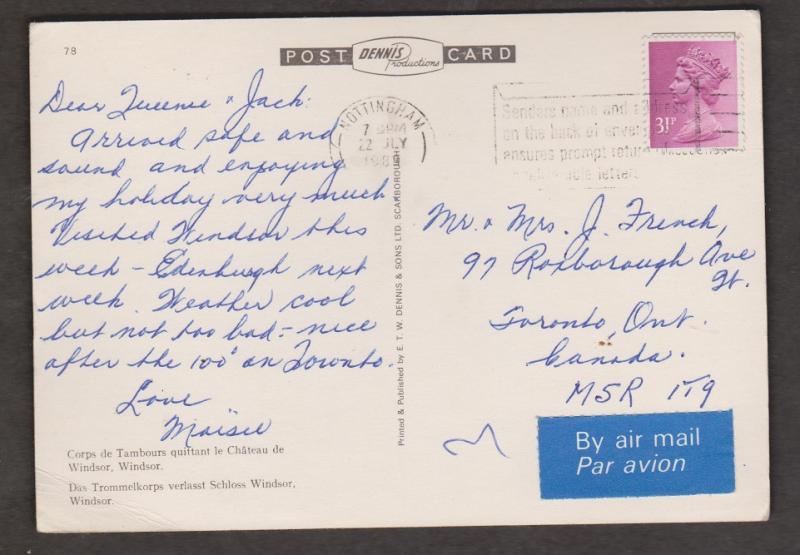 78
POST DENNIS Productions CARD
Dear Queenie & Jack:
Arrived safe and
sound and enjoying
my holiday very much
Visited Windsor this
week – Edinburgh next
week. Weather cool
but not too bad – nice
after the 100° in Toronto.
Love
Maisie
Corps de Tambours quittant le Château de
Windsor, Windsor.
Das Trommelkorps verlasst Schloss Windsor,
Windsor.
Printed & Published by E. T. W. DENNIS & SONS LTD. SCARBOROUGH
NOTTINGHAM
7 PM
22 JLY
Senders name and address
on the back of envelopes
ensures prompt return
letter
3½P
Mr. & Mrs. J. French,
97 Roxborough Ave
St.
Toronto, Ont.
Canada.
M5R 1T9
By air mail
Par avion